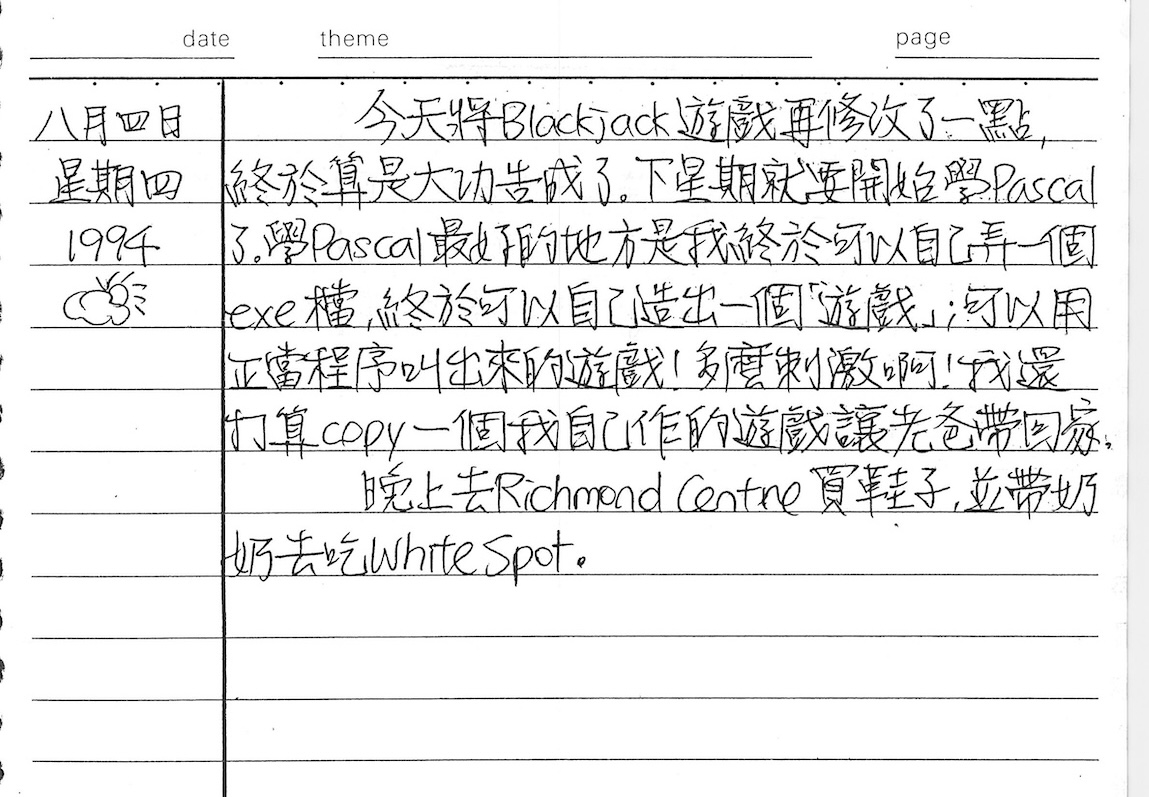 date theme page
八月四日 今天將Blackjack遊戲再修改了一點,
星期四 終於算是大功告成了。下星期就要開始學Pascal
1994 了。學Pascal最好的地方是我終於可以自己弄一個
exe檔,終於可以自己造出一個「遊戲」;可以用
正當程序叫出來的遊戲!多麼刺激啊!我還
打算copy一個我自己作的遊戲讓老爸帶回家。
晚上去Richmond Centre買鞋子,並帶奶
奶去吃White Spot.